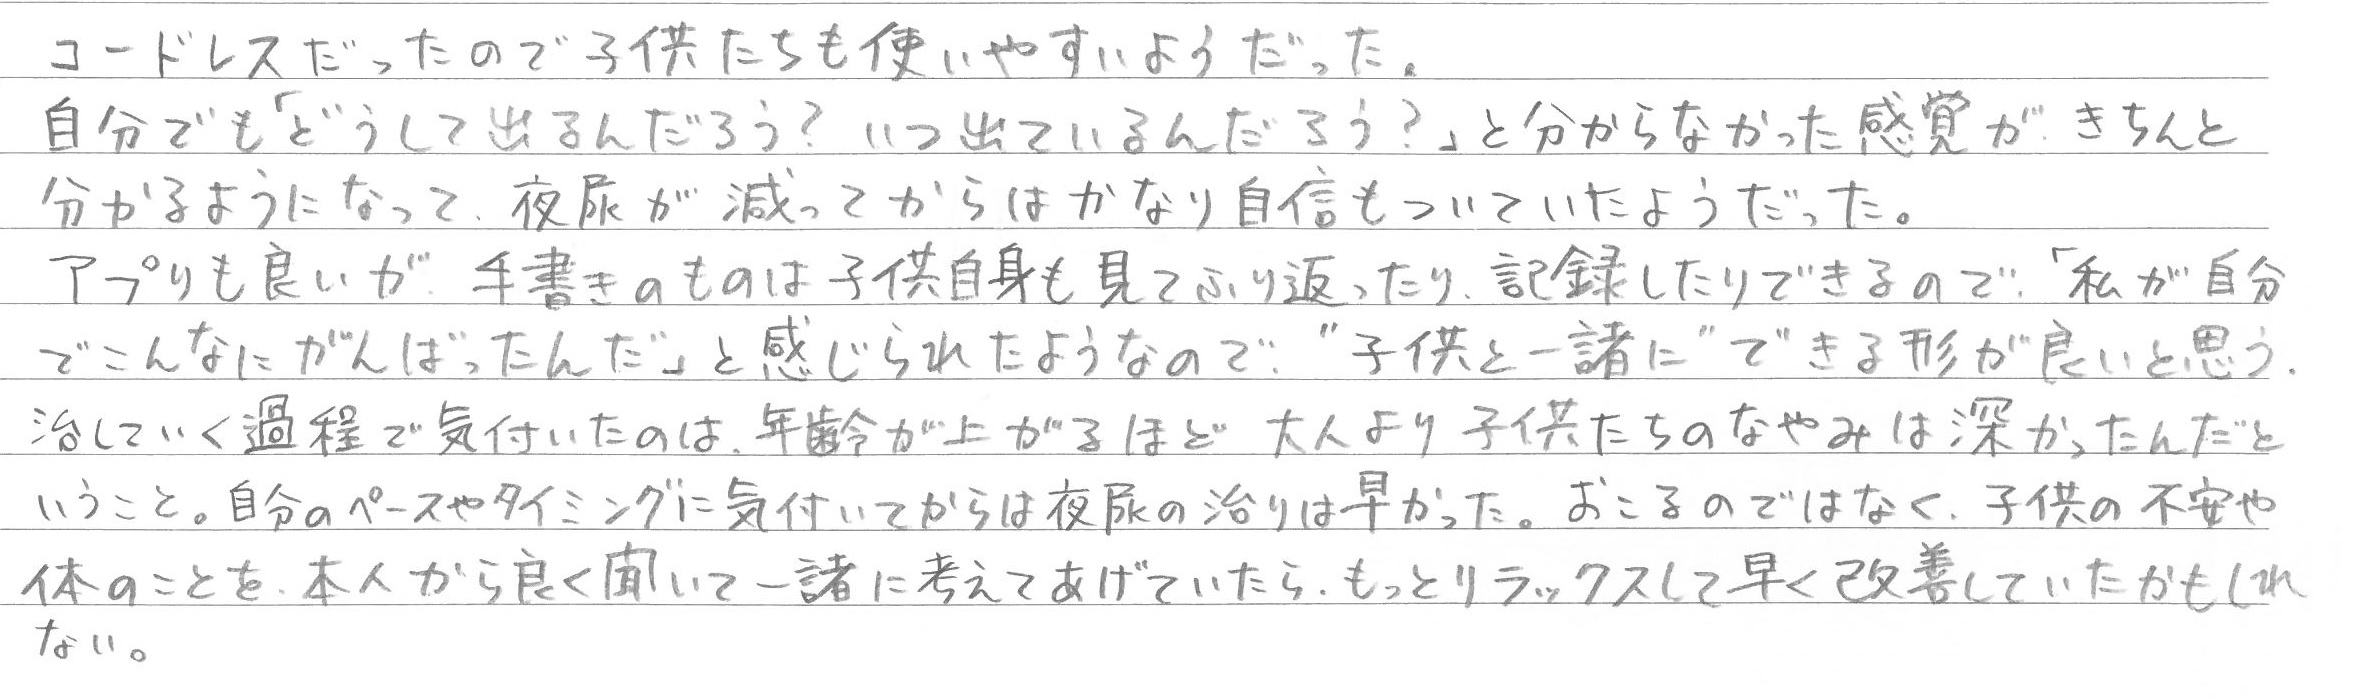 コードレスだったので子供たちも使いやすいようだった。
自分でも「どうして出るんだろう？いつ出ているんだろう？」と分からなかった感覚が、きちんと
分かるようになって、夜尿が減ってからはかなり自信もついていたようだった。
アプリも良いが、手書きのものは子供自身も見てふり返ったり、記録したりできるので、「私が自分
でこんなにがんばったんだ」と感じられたようなので、"子供と一諸に"できる形が良いと思う。
治していく過程で気付いたのは、年齢が上がるほど大人より子供たちのなやみは深かったんだと
いうこと。自分のペースやタイミングに気付いてからは夜尿の治りは早かった。おこるのではなく、子供の不安や
体のことを、本人から良く聞いて一諸に考えてあげていたら、もっとリラックスして早く改善していたかもしれ
ない。